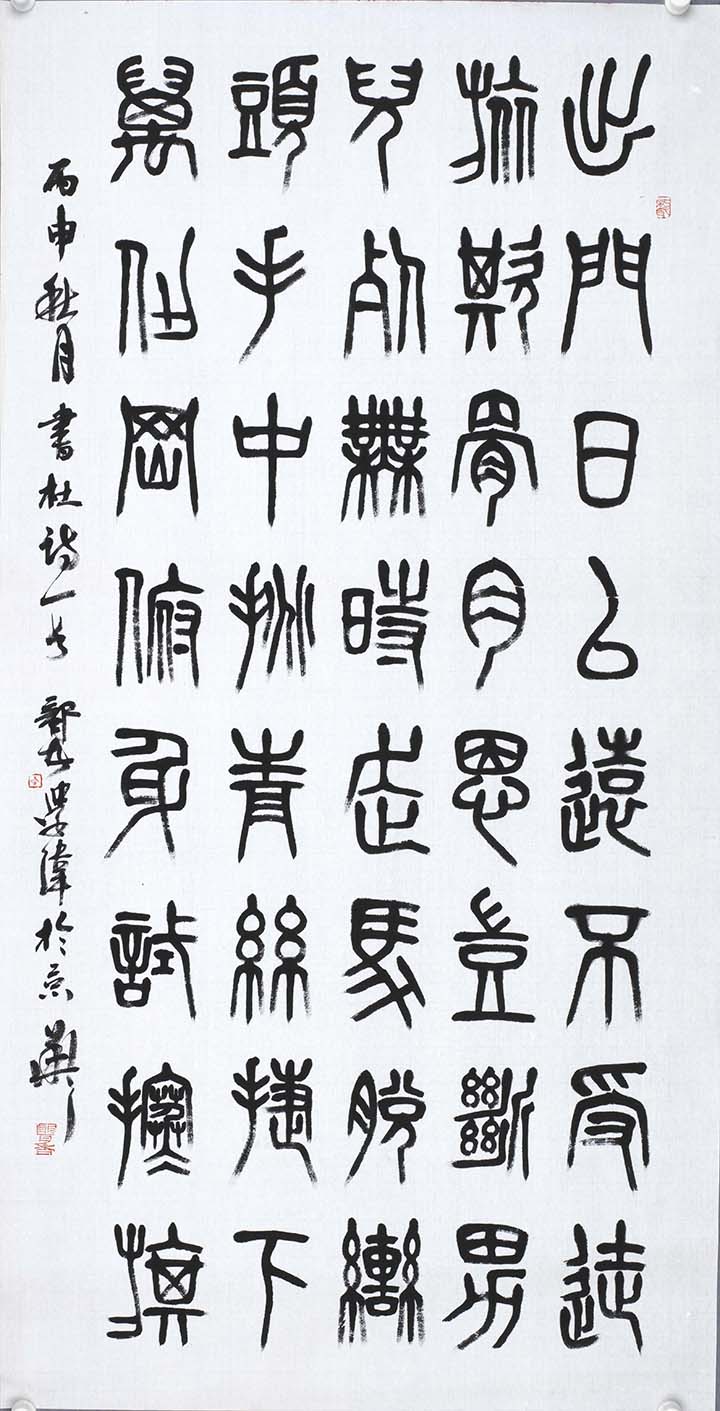 出門日已遠不受徒
旅欺骨肉恩豈斷男
兒死無時走馬脫轡
頭手中挑青絲捷下
萬仞岡俯身試搴旗
丙申秋月書杜詩一首 學偉於京